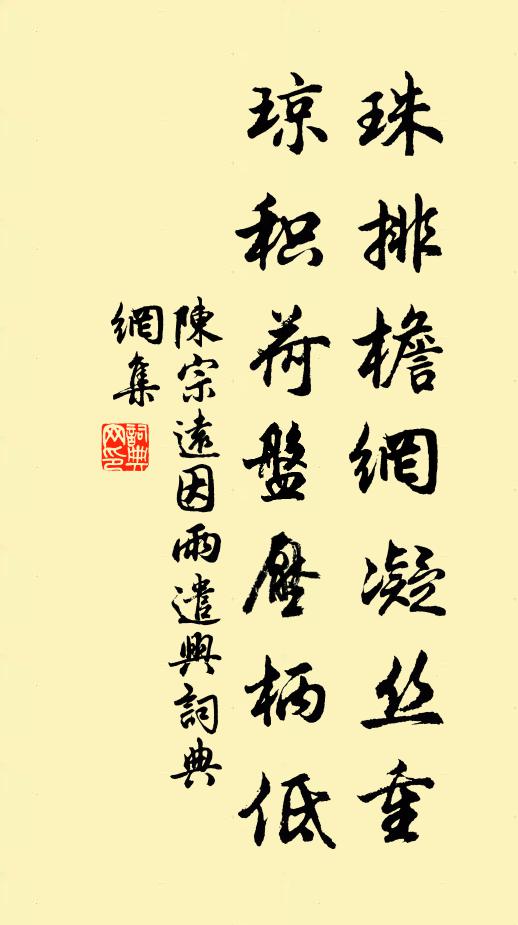 珠排檐網凝丝重
琼积荷盤壓柄低
陳宗遠因雨遣興詞典
網集
詞典网印